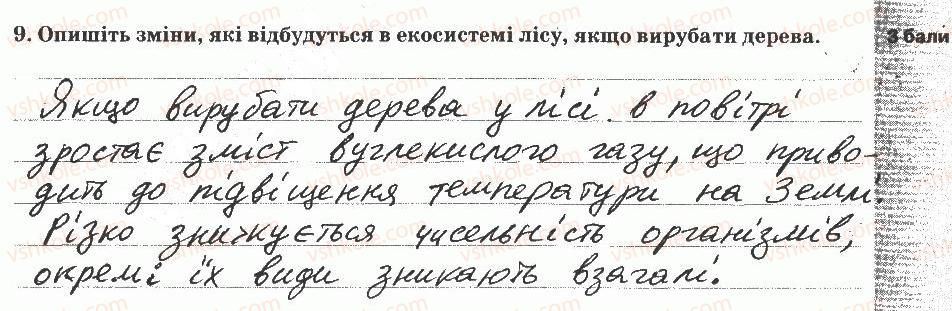 9. Опишіть зміни, які відбудуться в екосистемі лісу, якщо вирубати дерева.
3 бали
Якщо вирубати дерева у лісі в повітрі
зростає зміст вуглекислого газу, що приво-
дить до підвіщення температури на Землі.
Різко знижується чисельність організмів,
окремі їх види зникають взагалі.